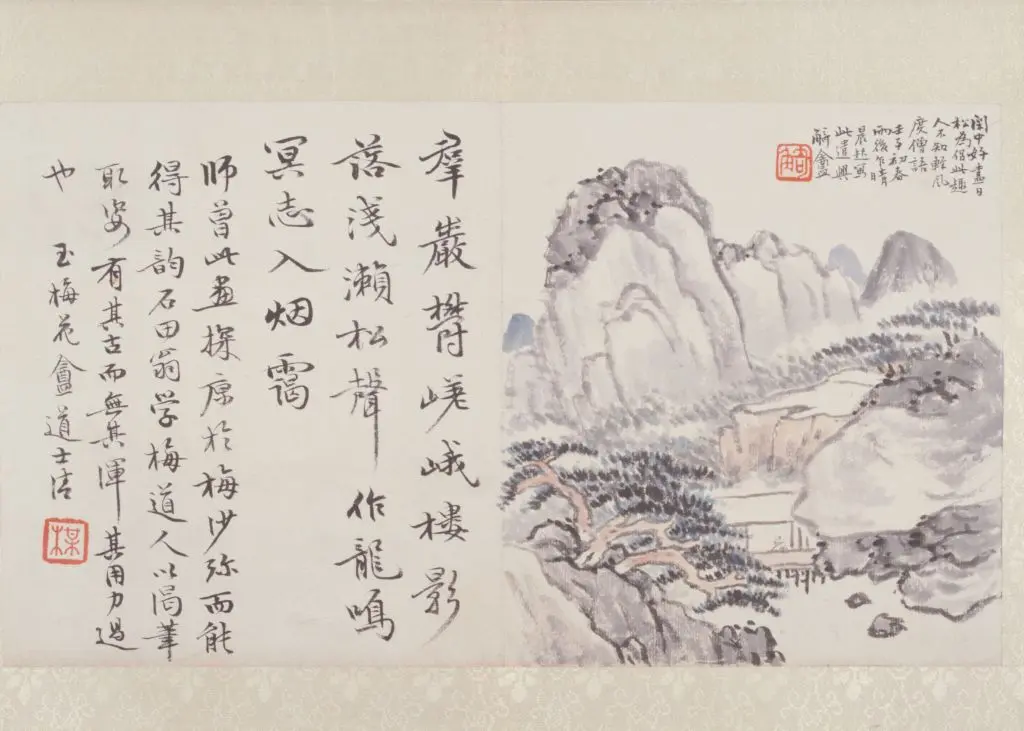 閒中好盡日
松為侶此趣
人不知輕風
度僧語
壬子初春
雨後乍晴
晨起寫
此遣興
盦
羣巖欝嵯峨樓影
落淺瀨松聲作龍鳴
冥志入烟靄
師曾此畫探原於梅沙弥而能
得其韵石田翁学梅道人以渴筆
取姿有其古而無其渾其用力過
也 玉梅花盦道士清
楳